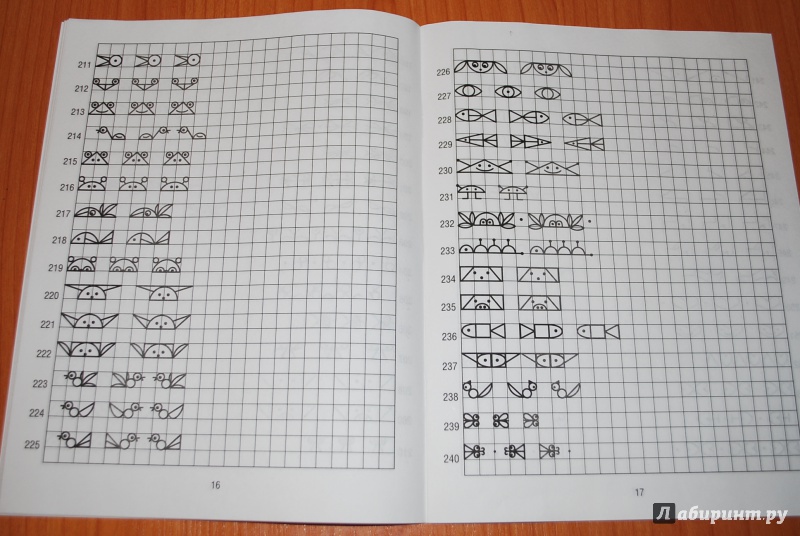 211
212
213
214
215
216
217
218
219
220
221
222
223
224
225
16
226
227
228
229
230
231
232
233
234
235
236
237
238
239
240
17
Лабиринт.ру